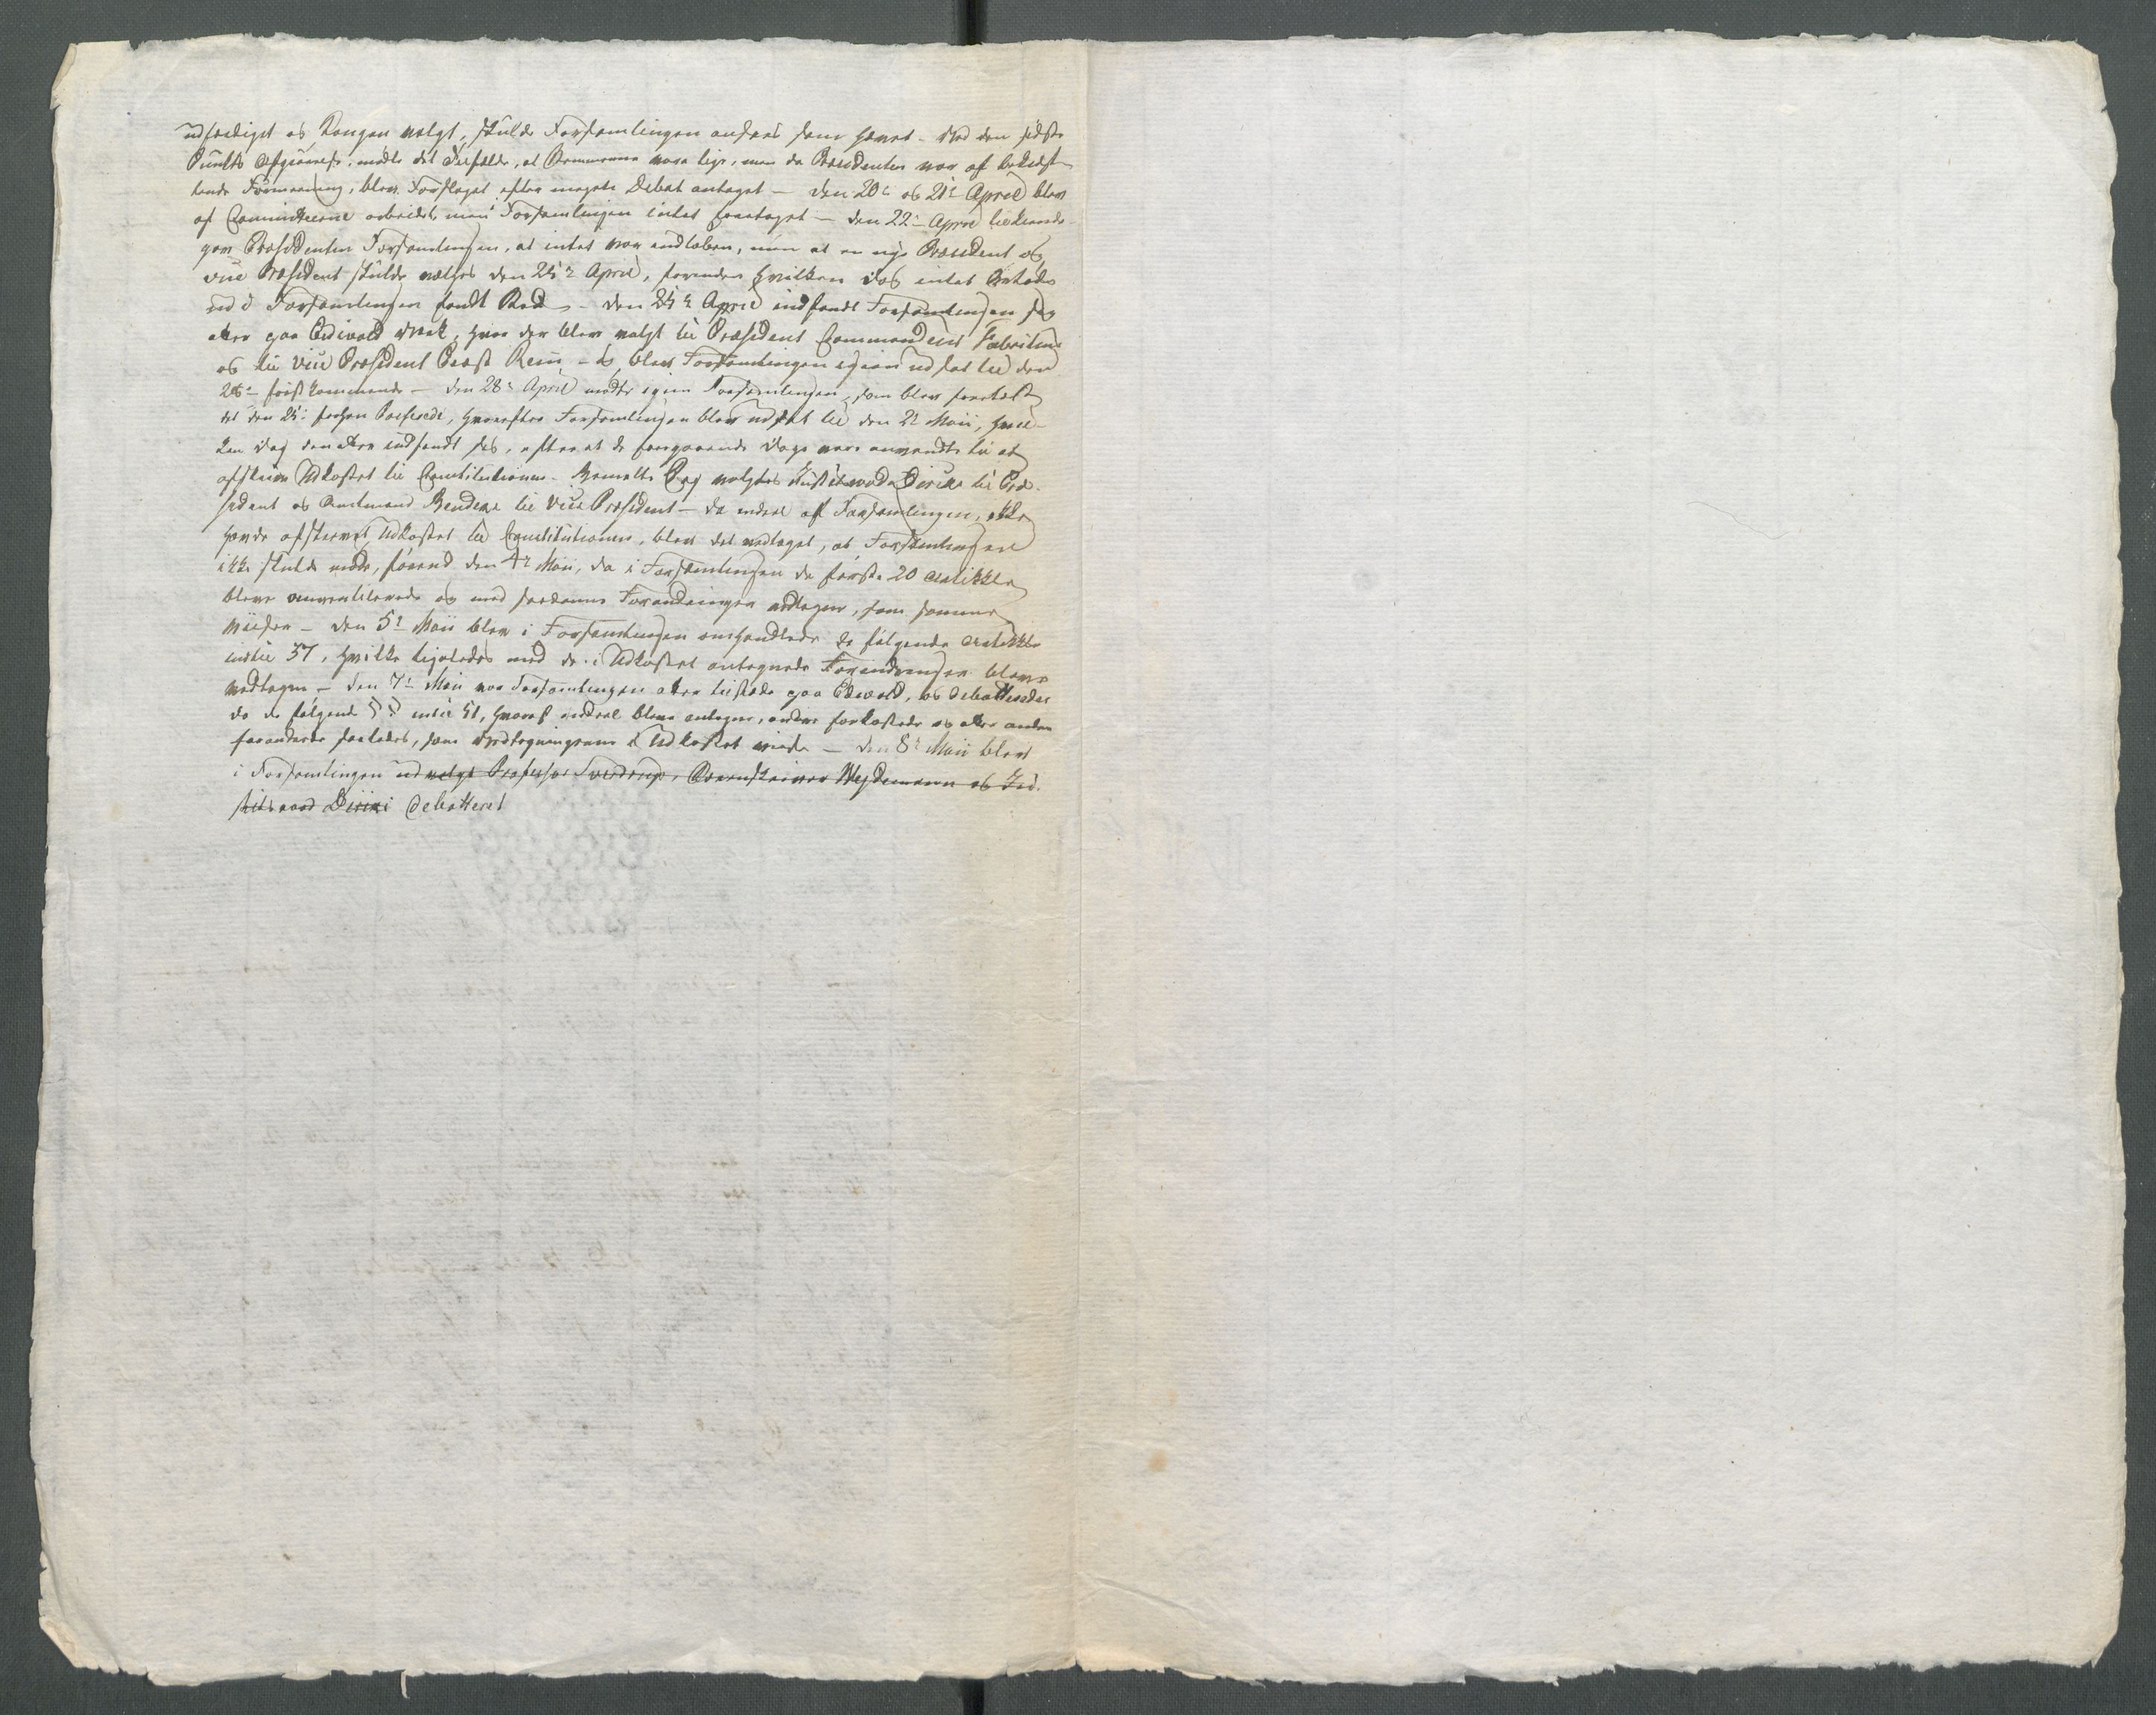 udfærdiget og Kongen valgt, skulde Forsamlingen ansees som hævet - Ved den sidste
Puncts Afgiørelse, mødte det Tilfælde, at Stemmerne vare lige, men da Præsidenten var af bekræft-
tende Formeening, blev Forslaget efter megen Debat antaget - Den 20de og 21de April blev
af Committeerne arbeidet men i Forsamlingen intet foretaget - den 22de April tilkiende-
gav Præsidenten Forsamlingen, at intet var indløben, men at en nye Præsident og
Vice Præsident skulde vælges den 25de April, forinden hvilken Dag intet Arbeide
ud i Forsamlingen fandt Sted - Den 25de April indfandt Forsamlingen sig
atter paa Eidsvold Værk, hvor der blev valgt til Præsident Commandeur Fabritius
og til Vice Præsident Præst Rein, - og blev Forsamlingen igien udsat til den
28de førstkommende - Den 28de April mødte igien Forsamlingen, som blev forelæst
det den 25de passerede, hvorefter Forsamlingen blev udsat til den 2de Maii, hvil-
ken Dag den atter indfandt sig, efterat de foregaaende Dage vare anvendte til at
afskrive Udkastet til Constitutionen - Bemelte Dag valgtes Justitsraad Diriks til Præ-
sident og Amtmand Bendeke til Vice Præsident - da endeel af Forsamlingen, ikke
havde afskrevet Udkastet til Constitutionen, blev det vedtaget, at Forsamlingen
ikke skulde møde, førend den 4de Maii, da i Forsamlingen de første 20 Artikkler
bleve omventilerede og med saadanne Forandringer vedtagne, som samme
udviser - Den 5te Maii blev i Forsamlingen omhandlede de følgende Artikkler
indtil 37, hvilke ligeledes med de i Udkastet antegnede Forandringer bleve
vedtagne - Den 7de Maii var Forsamlingen atter tilstede paa Edsvold, og debatteredes
da de følgende §§ indtil 51, hvoraf endeel bleve antagne, andre forkastede og atter andre
forandrede saaledes, som Vedtegningerne i Udkastet viser - Den 8de Maii blev
i Forsamlingen udvalgt Professor Sverdrup, Sorenskriver Weydemann og Jus-
titsraad Diriks debatteret